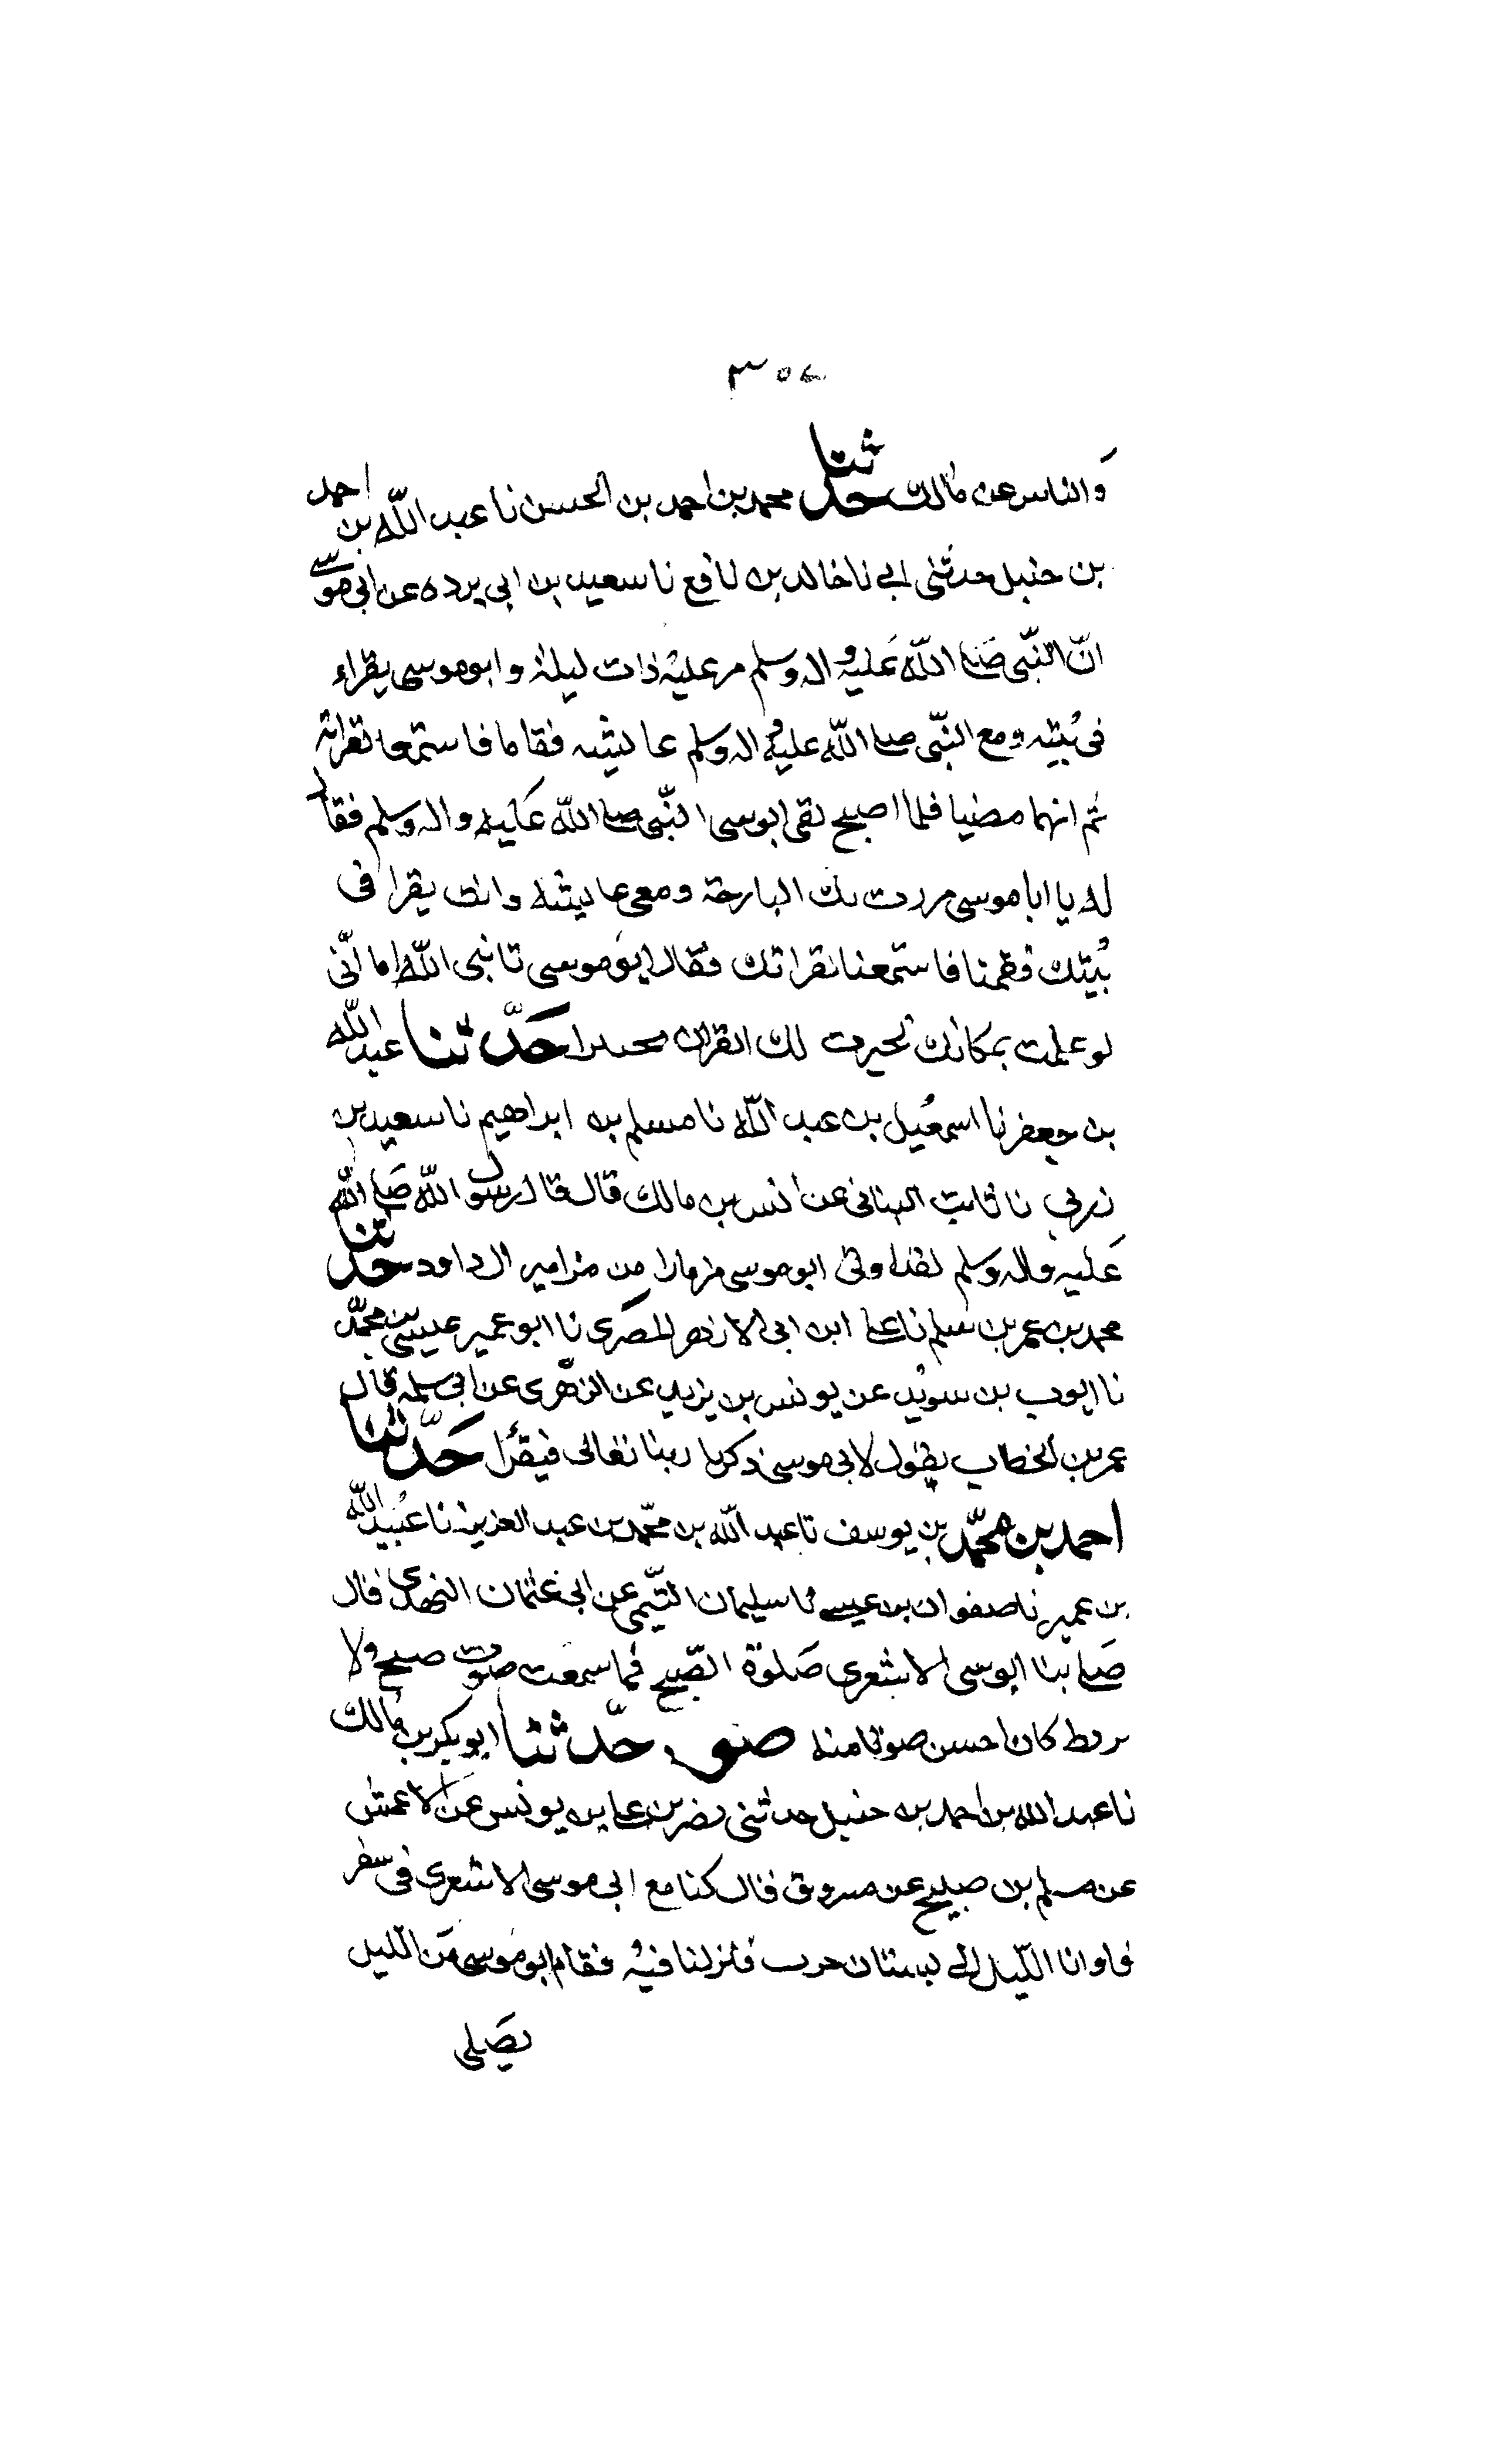 ٣٥٧
والناس عن مالك حدثنا محمد بن احمد بن الحسن نا عبد الله بن احمد
بن حنبل حدثنى ابى نا خالد بن نافع نا سعيد بن ابى برده عن ابى موسى
انّ النّبى صَلى اللّه عَليه واله وسلم مر عليه ذات ليلة وابو موسى يقراء
فى بيته ومع النّبى صلى اللّه عليه واله وسلم عايشه فقاما فاستمعا لقراته
ثم انهما مضيا فلما اصبح لقى ابو موسى النّبى صلى اللّه عَليه واله وسلم فقال
له يا ابا موسى مررت بك البارحة ومعى عايشه وانت يقرا فى
بيتك فقمنا فاستمعنا لقراتك فقال ابو موسى يا نبى اللّه اما انّى
لو علمت بمكانك لحبرت لك القران تحبيرا حَدّثنا عبد اللّه
بن جعفر نا اسمعيل بن عبد اللّه نا مسلم بن ابراهيم نا سعيد بن
زربى نا ثابت البنانى عن انس بن مالك قال قال رسول اللّه صَلى اللّه
عَليه واله وسلم لقد اوتى ابو موسى مزمارا من مزامير ال داود حدثنا
محمد بن عمر بن سلم نا على ابن ابى الازهر المصَرى نا ابو عمير عيسى بن محمّد
نا ايوب بن سويد عن يونس بن يزيد عن الزّهرى عن ابى سلمه قال
عمر بن الخطاب يقول لابى موسى ذكرنا ربنا تعالى فيقرا حَدّثنا
احمد بن محمّد بن يوسف نا عبد اللّه بن محمّد بن عبد العزيز نا عُبيد اللّه
بن عمير نا صفوان بن عيسى نا سليمان التّيمى عن ابى عثمان النهدى قال
صَلى بنا ابو موسى الاشعرى صَلوة الصّبح فما سمعت صوت صبح ولا
بربط كان احسن صوتا منه حدّثنا ابو بكر بن مالك
نا عبد الله بن احمد بن حنبل حدثنى نصر بن على بن يونس عن الاعمش
عن مسلم بن صبيح عن مسروق قال كنا مع ابى موسى الاشعرى فى سفر
فاوانا اللّيل الى بستان حرب فنزلنا فيه فقام ابو موسى من اللّيل
يصَلى